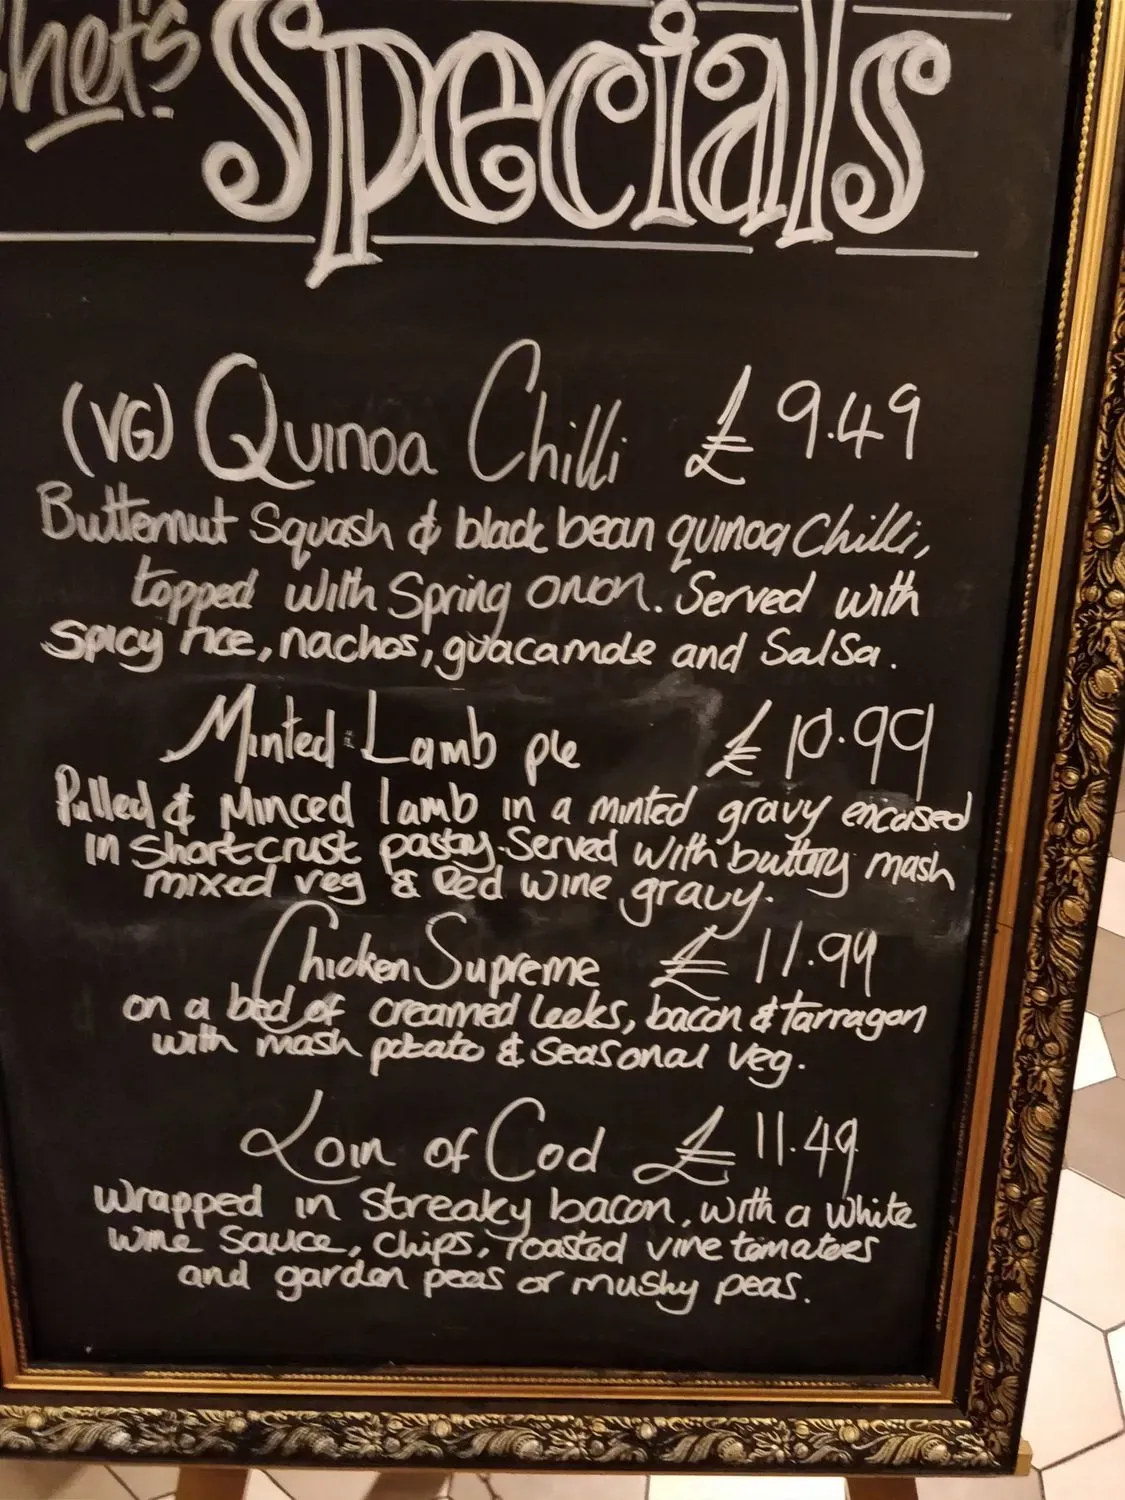 Chef's Specials
(VG) Quinoa Chilli £9.49
Butternut Squash & black bean quinoa Chilli,
topped with Spring onion. Served with
Spicy rice, nachos, guacamole and Salsa.
Minted Lamb pie £10.99
Pulled & Minced lamb in a minted gravy encased
in Shortcrust pastry. Served with buttery mash
mixed veg & Red wine gravy.
Chicken Supreme £11.99
on a bed of creamed leeks, bacon & tarragon
with mash potato & Seasonal veg.
Loin of Cod £11.49
wrapped in streaky bacon, with a white
wine Sauce, chips, roasted vine tomatoes
and garden peas or mushy peas.